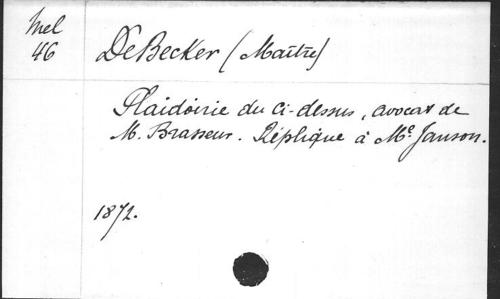 Mel
46
De Becker (Maître)
Plaidoirie du ci-dessus, avocat de
M. Brasseur. Réplique à Me. Janson.
1872.